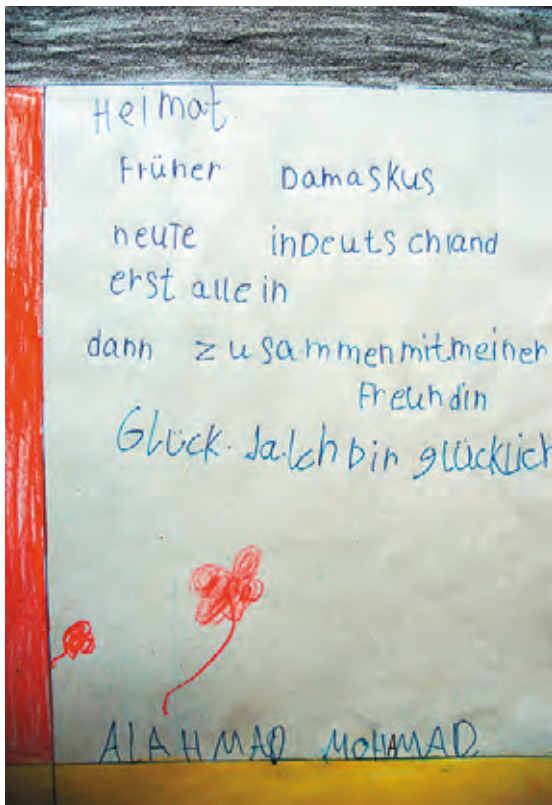 Heimat.
Früher Damaskus
heute in Deutschland
erst allein
dann zusammen mit meiner
Freundin
Glück. Ja. Ich bin glücklich
ALAHMAD MOHAMAD